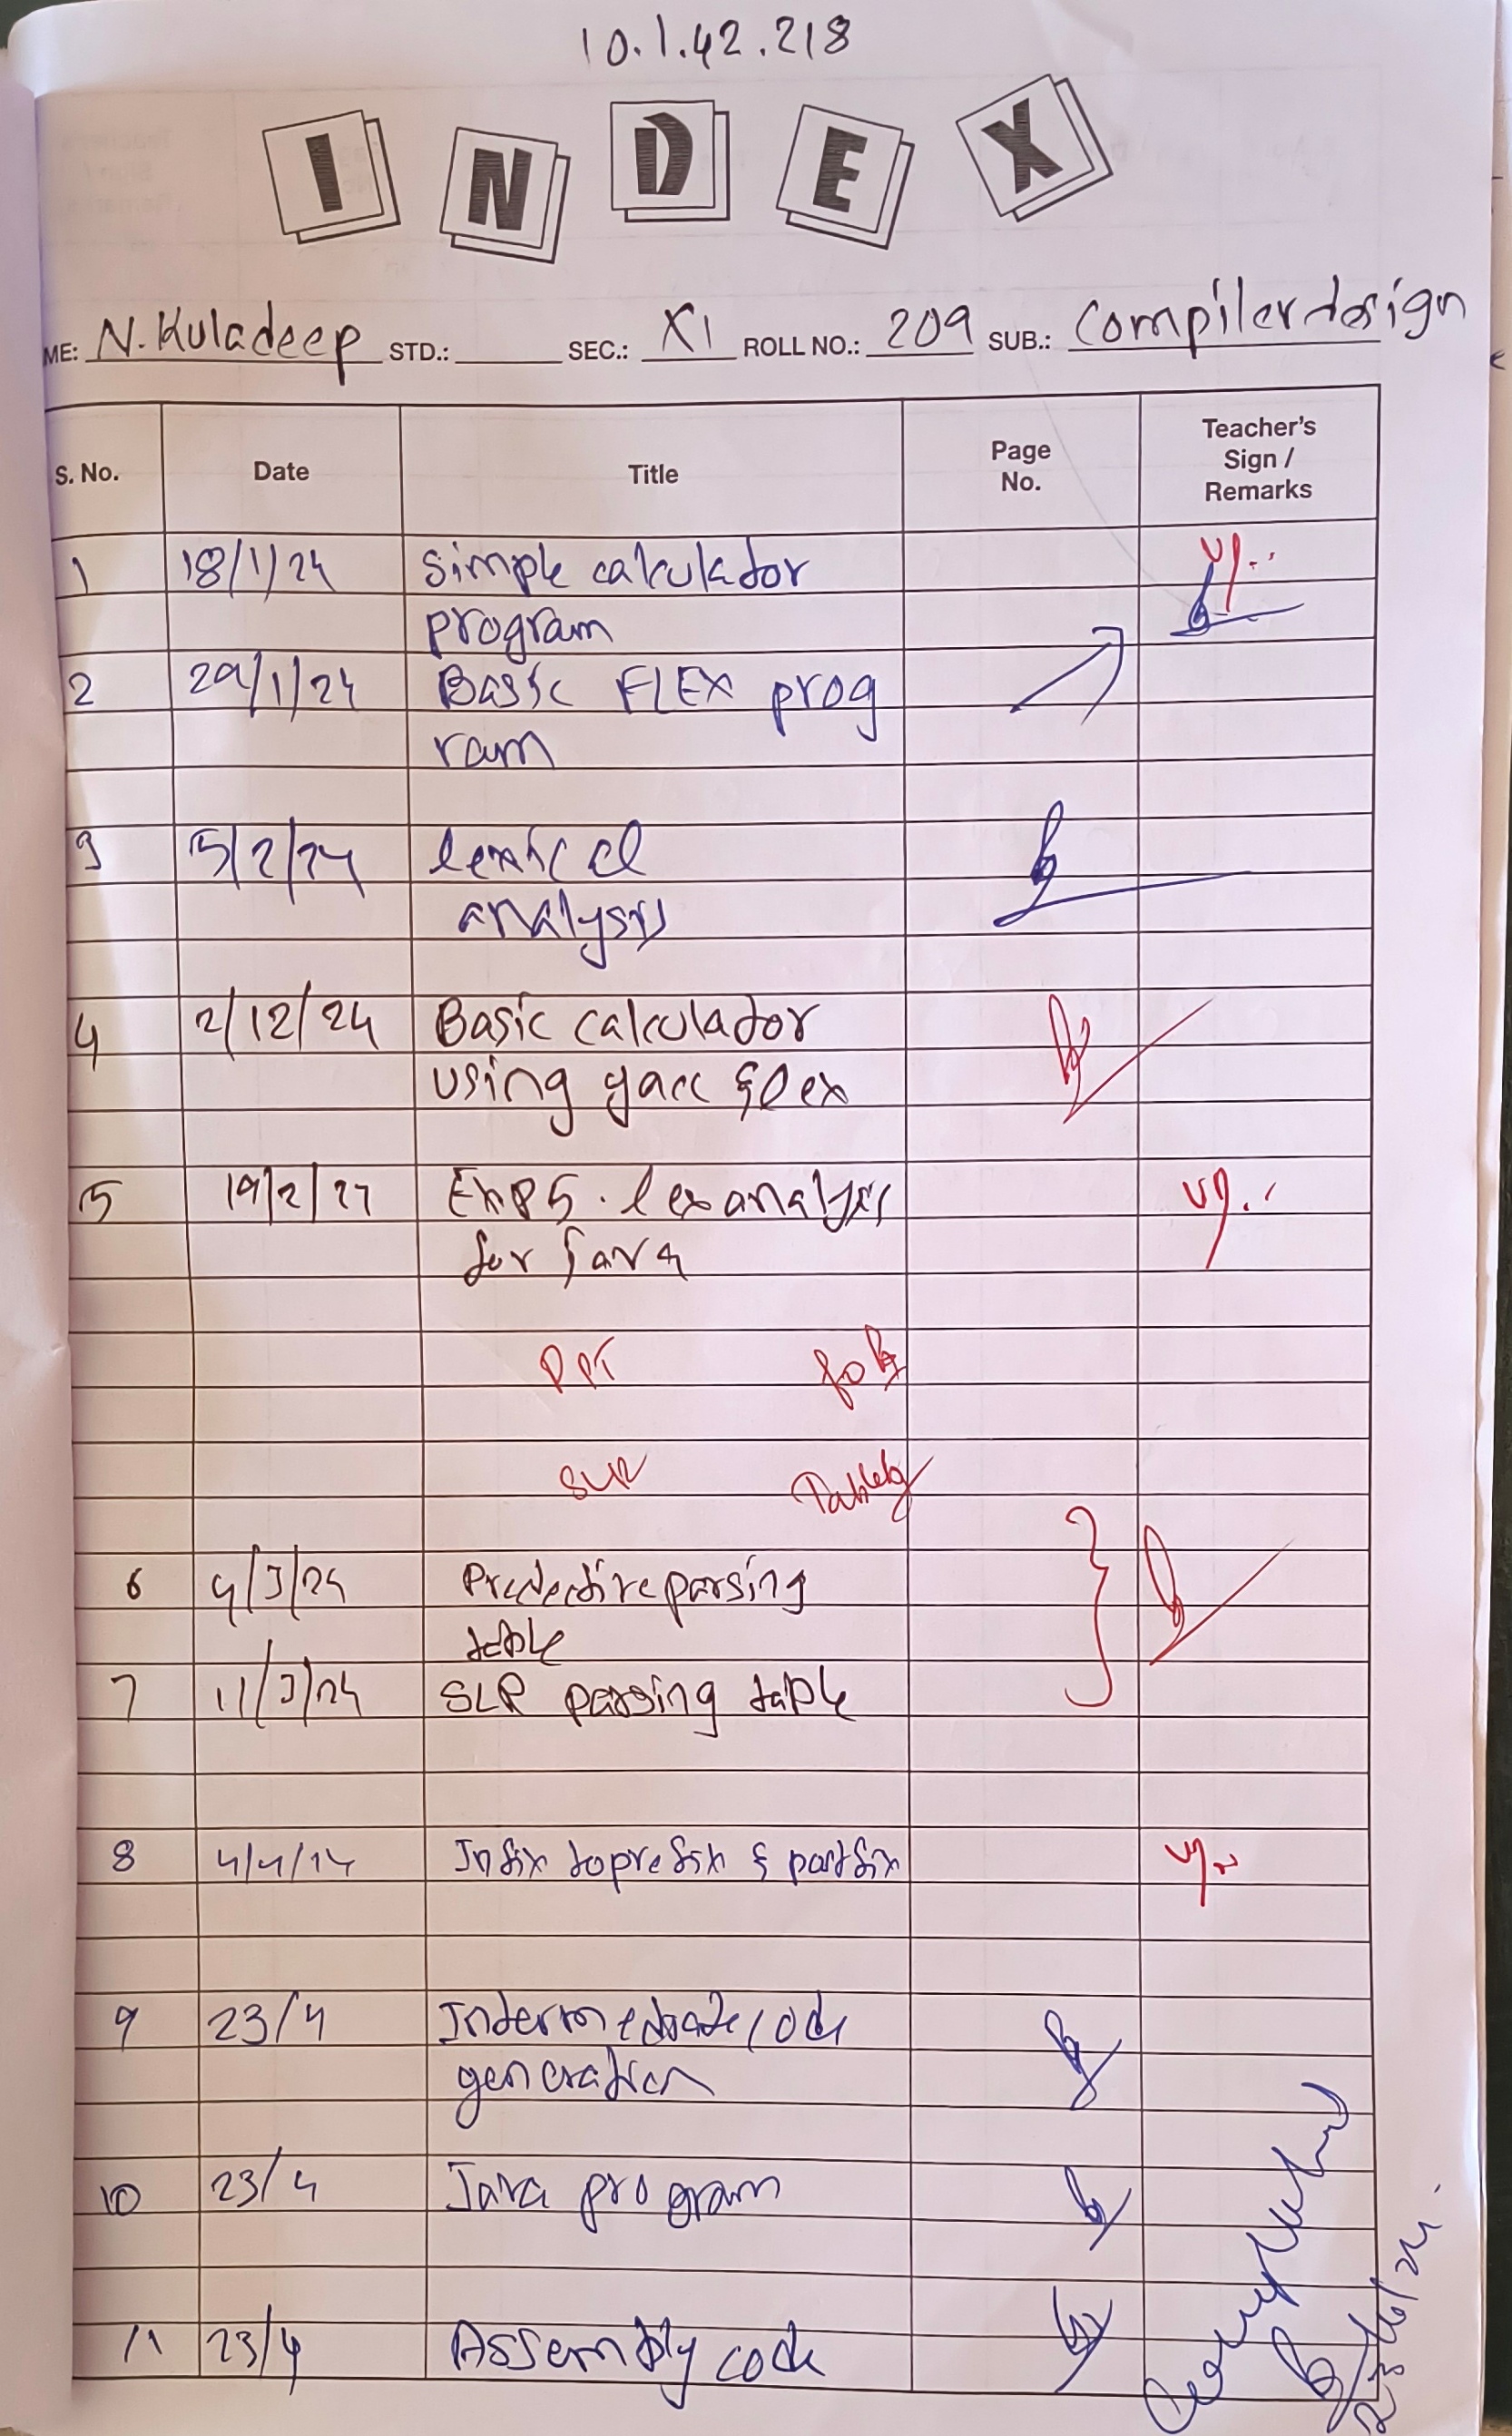 10.1.42.218
INDEX
ME: N.Kuladeep STD.: SEC.: XI ROLL NO.: 209 SUB.: Compiler design
S. No. Date Title Page No. Teacher's Sign / Remarks
1 18/1/24 Simple calculator
program
2 29/1/24 Basic FLEX prog
ram
3 5/2/24 lexical
analysis
4 2/12/24 Basic calculator
using yacc & lex
5 19/2/24 Exp5. lex analysis
for Java
PPT
SLR Table
6 4/3/24 Predective parsing
table
7 11/3/24 SLR parsing table
8 4/4/24 Infix to prefix & postfix
9 23/4 Intermediate code
generation
10 23/4 Java program
11 23/4 Assembly code
Completed
23/6/24.